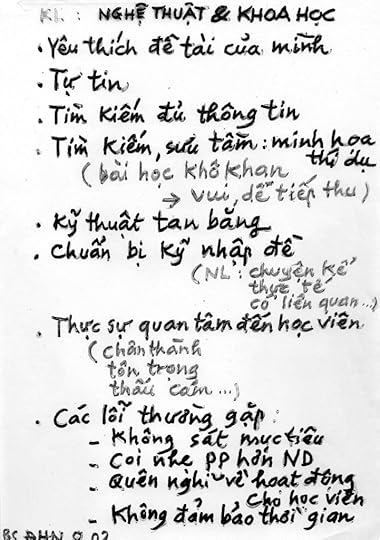 KL : NGHỆ THUẬT & KHOA HỌC
• Yêu thích đề tài của mình
• Tự tin
• Tìm kiếm đủ thông tin
• Tìm kiếm, sưu tầm : minh họa
thí dụ
( bài học khô khan
→ vui, dễ tiếp thu )
• Kỹ thuật tan băng
• Chuẩn bị kỹ nhập đề
( NL : chuyện kể
thực tế
có liên quan ...)
• Thực sự quan tâm đến học viên
( chân thành
tôn trọng
thấu cảm ...)
• Các lỗi thường gặp :
- Không sát mục tiêu
- Coi nhẹ PP hơn ND
- Quên nghĩ về hoạt động
cho học viên
- Không đảm bảo thời gian
BS ĐHN 9.02